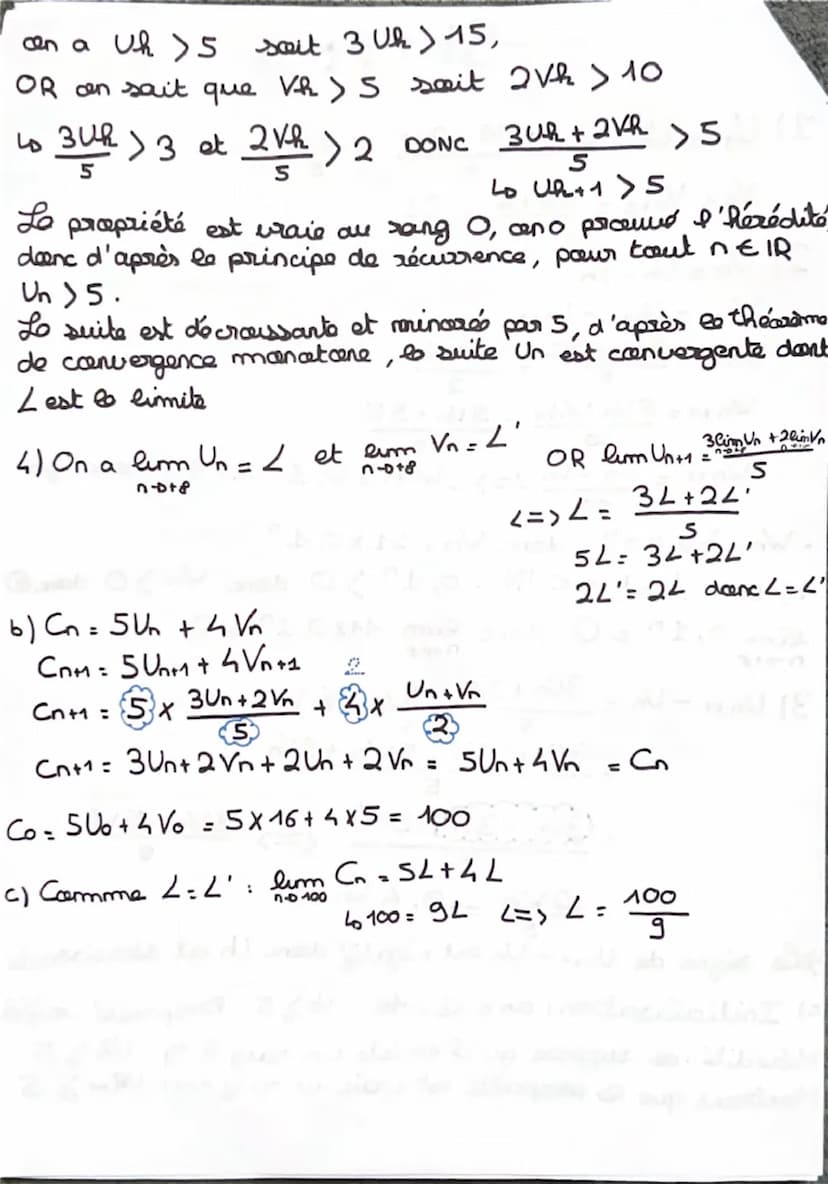 on a Uk > 5 soit 3Uk > 15,
OR on sait que Vk > 5 soit 2Vk > 10
↳ 3Uk/5 > 3 et 2Vk/5 > 2 DONC (3Uk + 2Vk)/5 > 5
↳ Uk+1 > 5
La propriété est vraie au rang 0, on a prouvé l'hérédité,
donc d'après le principe de récurrence, pour tout n ∈ IR
Un > 5.
La suite est décroissante et minorée par 5, d'après le théorème
de convergence monotone, la suite Un est convergente dont
L est la limite
4) On a lim n→+∞ Un = L et lim n→+∞ Vn = L' OR lim Un+1 = (3lim Un + 2lim Vn)/5
<=> L = (3L + 2L')/5
5L = 3L + 2L'
2L' = 2L donc L = L'
b) Cn = 5Un + 4Vn
Cn+1 = 5Un+1 + 4Vn+1 2
Cn+1 = 5 × (3Un + 2Vn)/5 + 4 × (Un + Vn)/2
Cn+1 = 3Un + 2Vn + 2Un + 2Vn = 5Un + 4Vn = Cn
C0 = 5U0 + 4V0 = 5 × 16 + 4 × 5 = 100
c) Comme L = L' : lim n→100 Cn = 5L + 4L
↳ 100 = 9L <=> L = 100/9